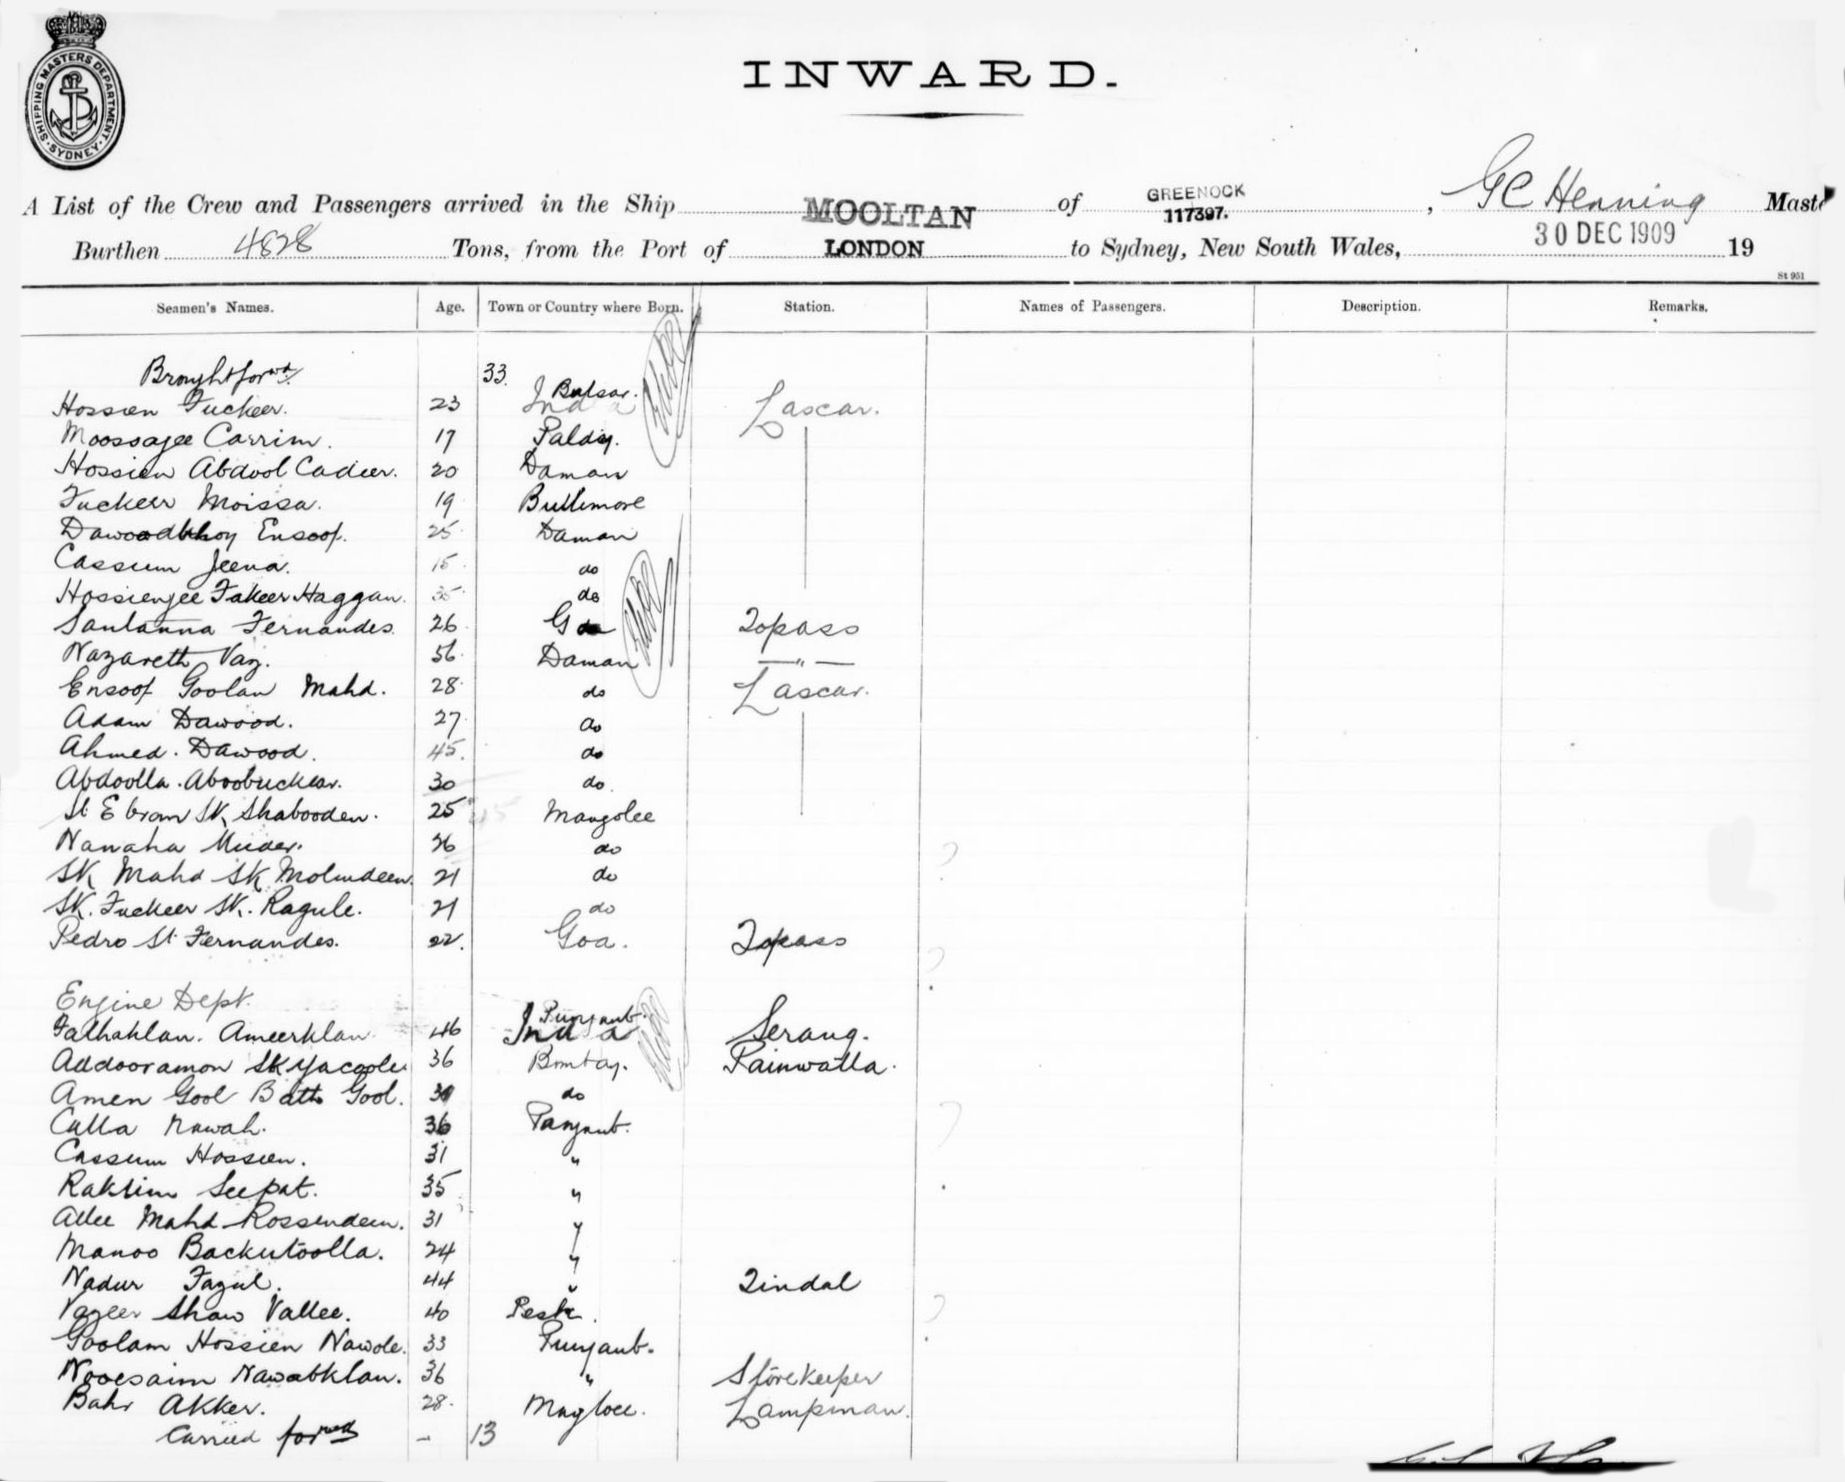 SHIPPING MASTERS DEPARTMENT. SYDNEY.
INWARD.
A List of the Crew and Passengers arrived in the Ship MOOLTAN of GREENOCK 117397. , GC Henning Maste
Burthen 4828 Tons, from the Port of LONDON to Sydney, New South Wales, 30 DEC 1909 19
St 951
Seamen's Names. Age. Town or Country where Born. Station. Names of Passengers. Description. Remarks.
Brought forwd. 33.
Hossien Fuckeer. 23 India Bulsar. Lascar.
Moossajee Carrim. 17
Hossien Abdool Cadeer. 20 Daman
Fuckeer Moissa. 19
Dawoodbhoy Ensoof. 25 Daman
Cassum Jeena. 15 do
Hossienjee Fakeer Haggan. 35 do
Santanna Fernandes. 26 Goa Topass
Nazareth Vaz. 56 Daman — " —
Ensoof Goolam Mahd. 28 do Lascar.
Adam Dawood. 27 do
Ahmed. Dawood. 45. do
Abdoolla. Aboobucker. 30 do.
Ebram SK Shabooden. 25 Mangolee
Nanaha 26 do
SK Mahd SK Moludeen. 21 do
SK. Fuckeer SK. Ragule. 21 do
Pedro St Fernandes. 22. Goa. Topass
Engine Dept.
Fathaklan. Ameerklan. 46 India Punjaub. Serang.
Addooramon SK Yacoole. 36 Bombay. Painwalla.
Amen Gool Batts Gool. do
Calla Nawah. 36 Panjaub.
Cassum Hossien. 31 "
Raklim Seepat. 35 "
Allee Mahd Rossendeen. 31 "
Manoo Backutoolla. 24 "
Nadur Fazul. 44 " Tindal
Vazeer Shaw Vallee. 40
Goolam Hossien Nawole. 33 Punjaub.
Nawabklan. 36 " Storekeeper
Bahr Akker. 28. Lampman.
Carried forwd – 13